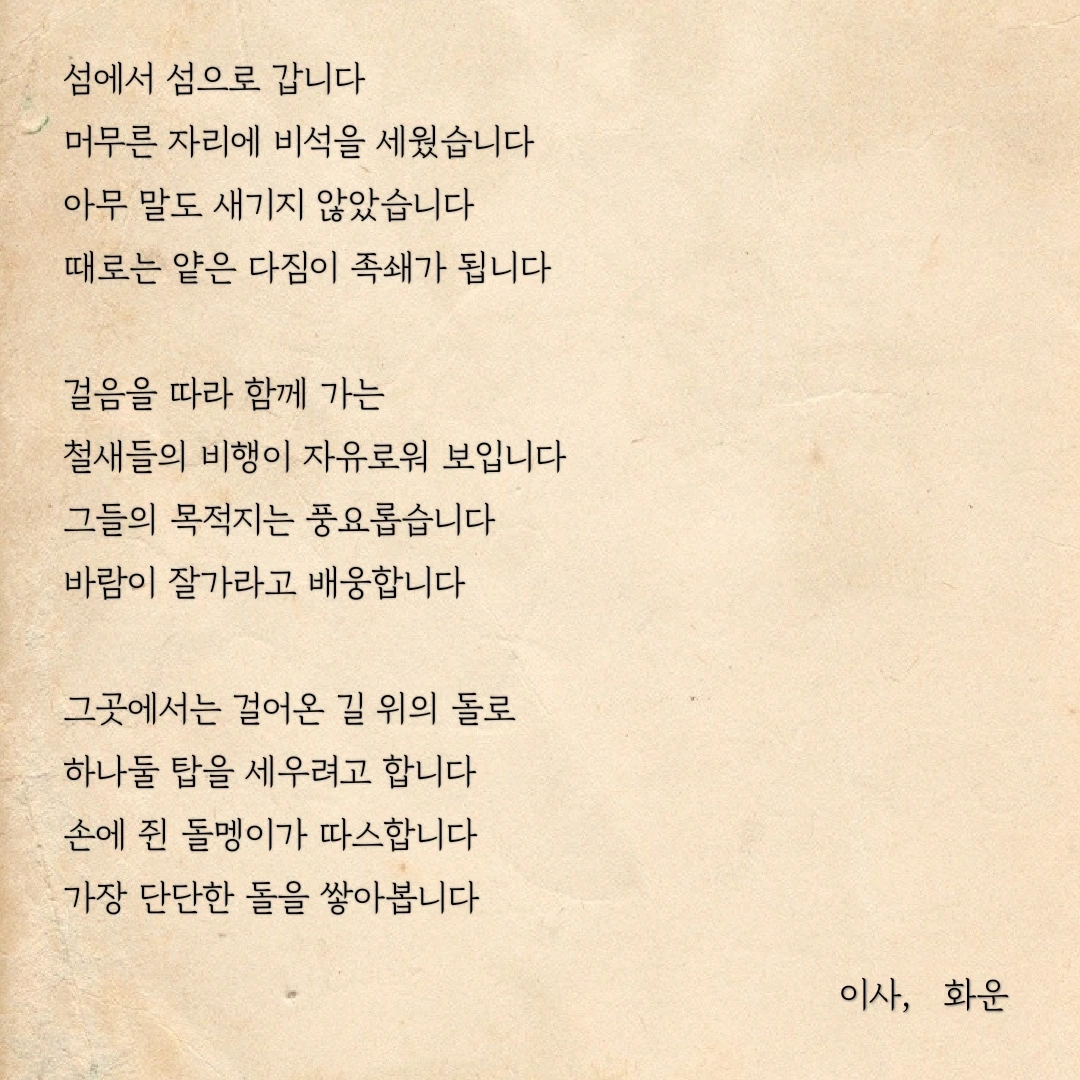 섬에서 섬으로 갑니다
머무른 자리에 비석을 세웠습니다
아무 말도 새기지 않았습니다
때로는 얕은 다짐이 족쇄가 됩니다
걸음을 따라 함께 가는
철새들의 비행이 자유로워 보입니다
그들의 목적지는 풍요롭습니다
바람이 잘가라고 배웅합니다
그곳에서는 걸어온 길 위의 돌로
하나둘 탑을 세우려고 합니다
손에 쥔 돌멩이가 따스합니다
가장 단단한 돌을 쌓아봅니다
이사, 화운